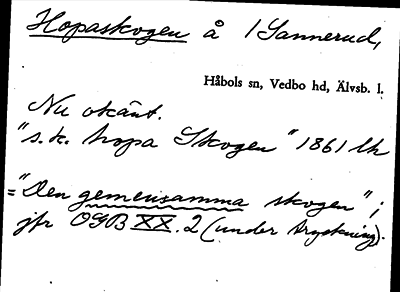 Hopaskogen å / Sannerud,
Håbols sn, Vedbo hd, Älvsb. l.
Nu okänt.
"s.k. hopa Skogen" 1861 lk
= "Den gemensamma skogen";
jfr OGB XX. 2 (under tryckning).